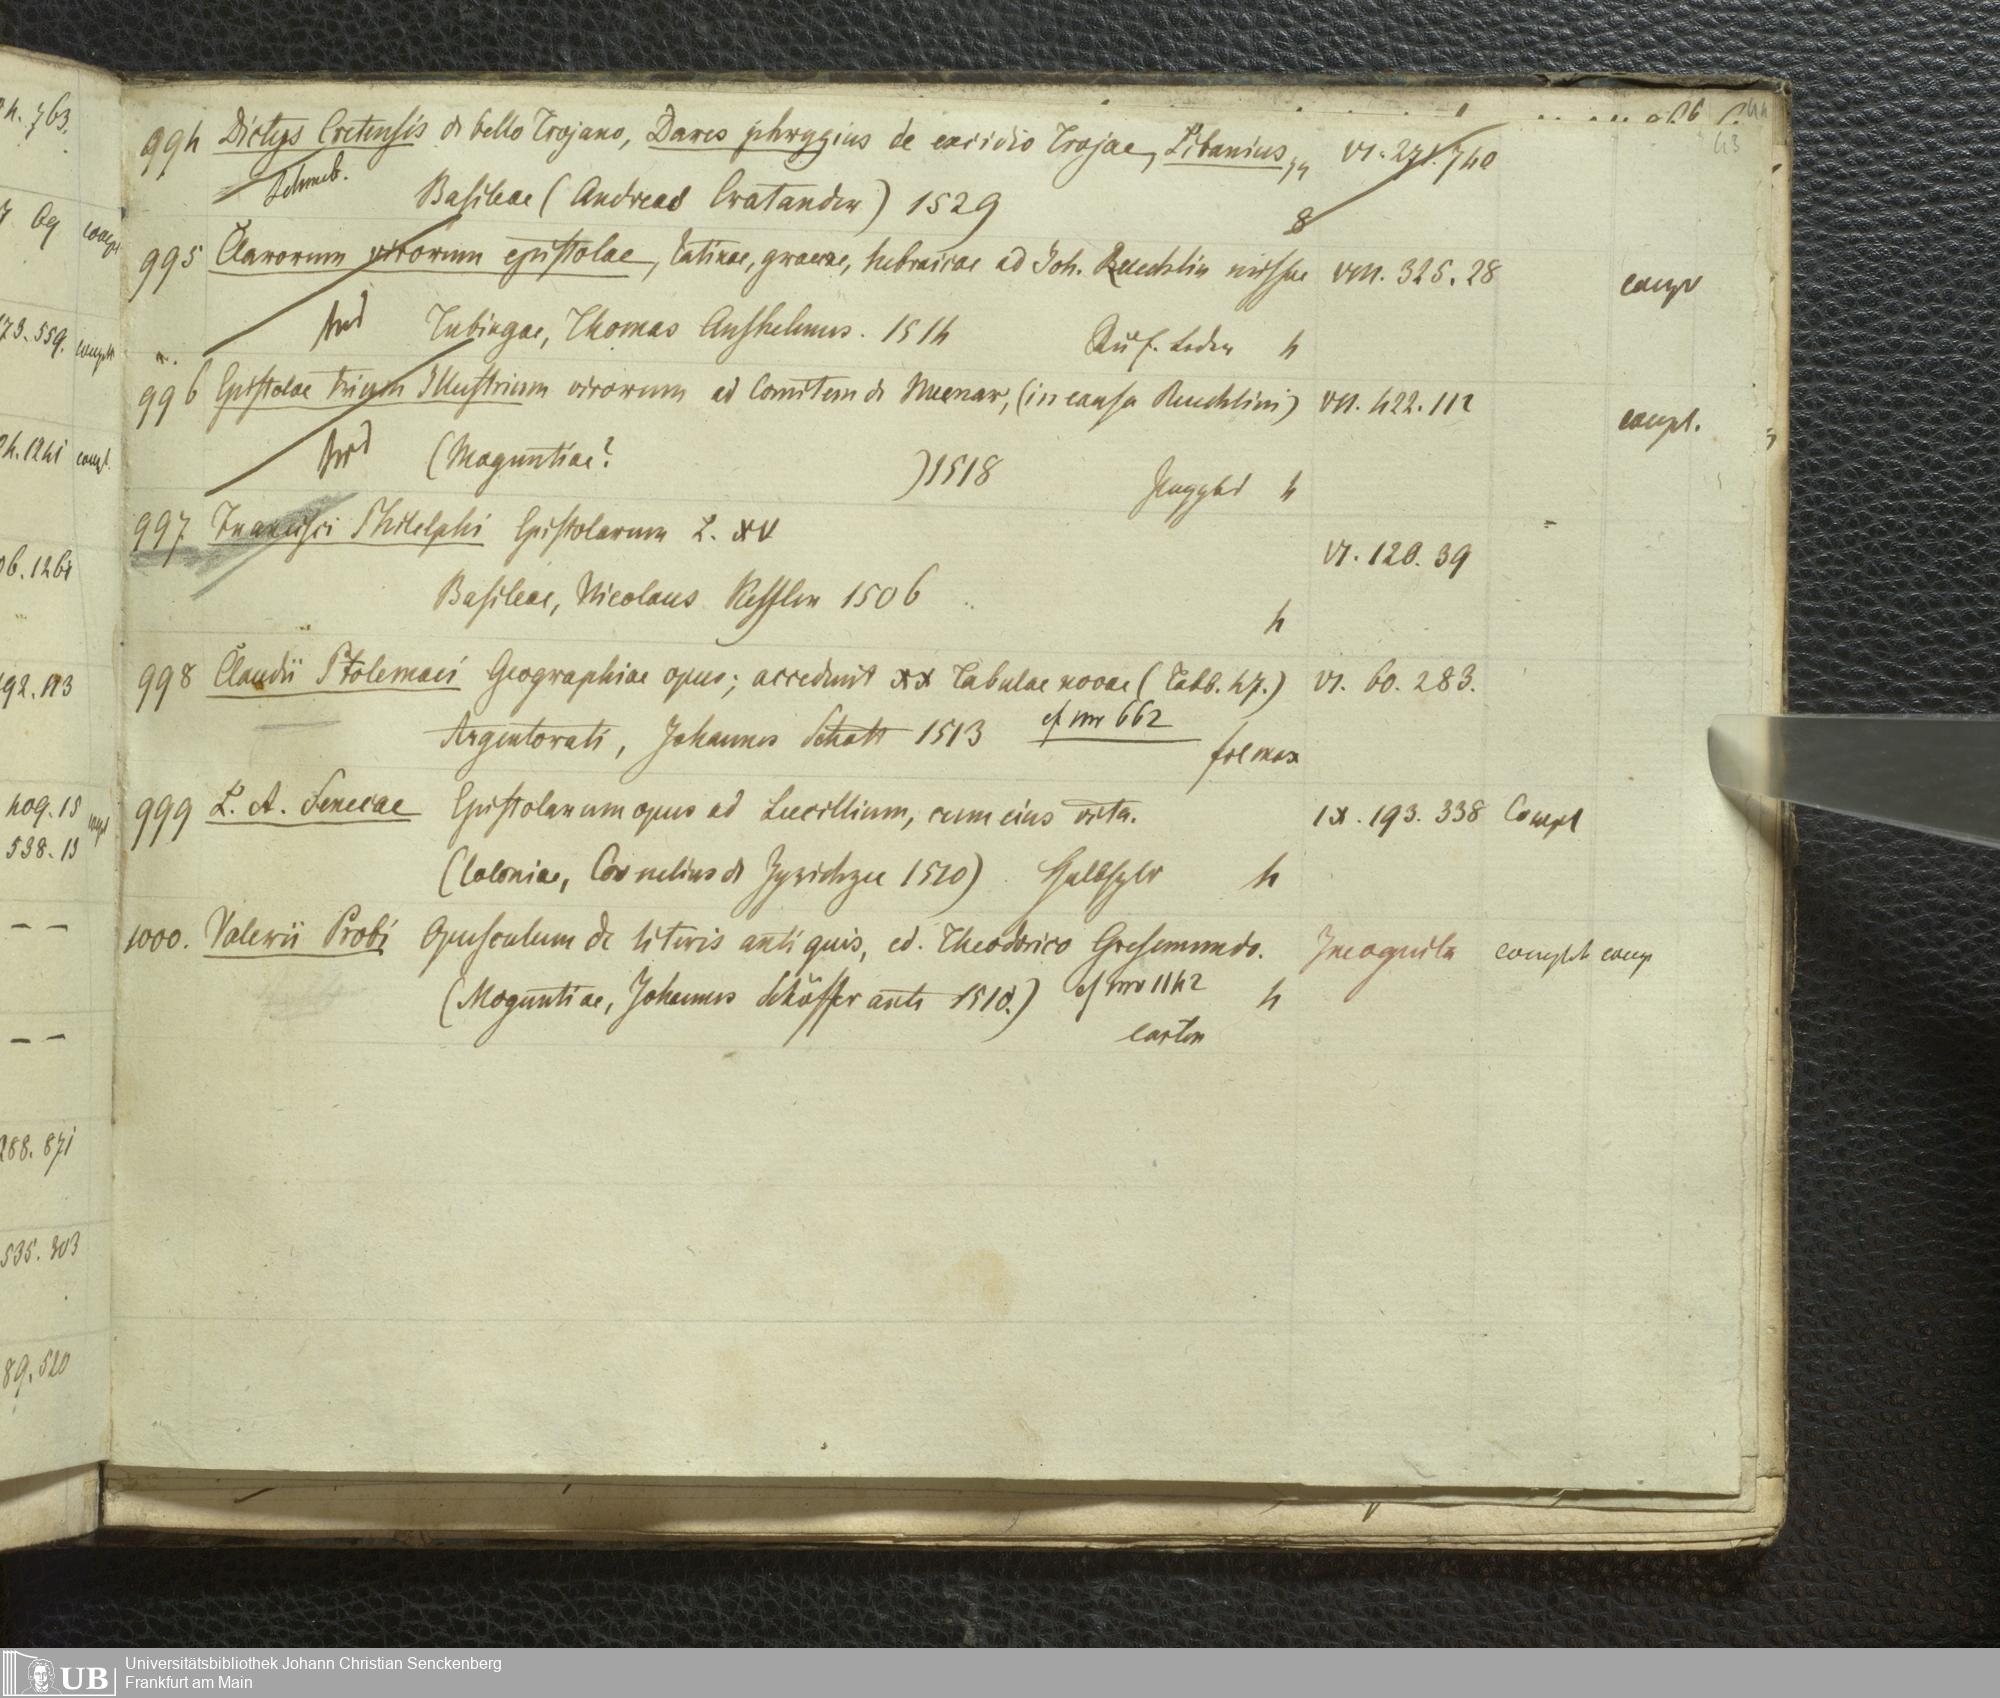 4. 763.
7 69 compl
173. 559. compl
04. 1241 compl.
06. 1261
192. 113
409. 15 compl
538. 13
— —
— —
288. 871
535. 303
89. 520
43
994 Dictys Cretensis de bello Trojano, Dares phrygius de excidio Trojae, Libanius VI. 271. 740
Basileae (Andreas Cratander) 1529 8
995 Clarorum virorum epistolae, latinae, graecae, hebraicae ad Joh. Reuchlin missae VIII. 325. 28 compl
Tubingae, Thomas Anshelmus. 1514 4
996 Epistolae trium Illustrium virorum ad Comitem de Nuenar, (in causa Reuchlini) VII. 422. 112 compl.
(Maguntiae? ) 1518 4
997 Francisci Philelphi Epistolarum L. XV VI. 120. 39
Basileae, Nicolaus Kessler 1506 4
998 Claudii Ptolemaei Geographiae opus; accedunt XX Tabulae novae (Tabb. 47.) VI. 60. 283.
Argentorati, Johannes Schott 1513 cf nro 662 fol max
999 L. A. Senecae Epistolarum opus ad Lucillium, cum eius vita. IX. 193. 338 Compl
(Coloniae, Cornelius de Zyrichzee 1510) 4
1000. Valerii Probi Opusculum de literis antiquis, ed. Theodorico Gresemundo. Incognita complt comp
(Moguntiae, Johannes Schöffer ante 1510.) cf nro 1142 4
carton
UB Universitätsbibliothek Johann Christian Senckenberg
Frankfurt am Main